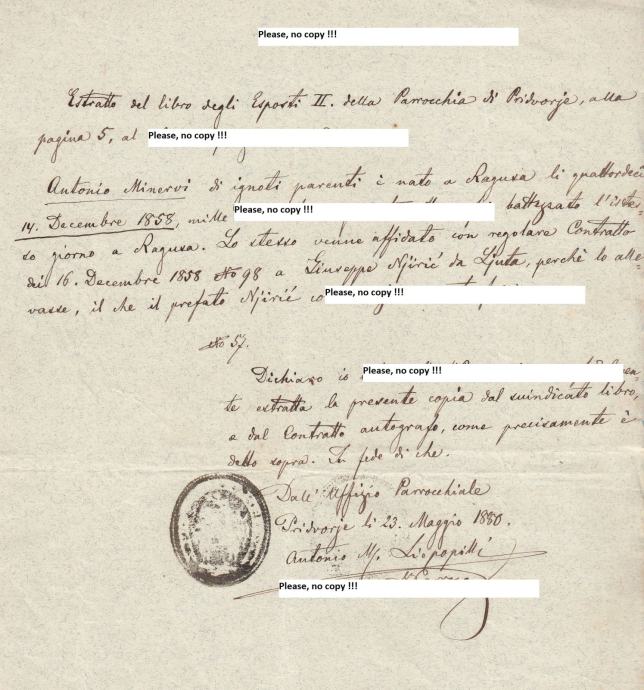 Please, no copy !!!
Estratto del libro degli Esposti II. della Parrocchia di Pridvorje, alla
pagina 5, al Please, no copy !!!
Antonio Minervi di ignoti parenti è nato a Ragusa li quattordeci
14. Decembre 1858, mille Please, no copy !!! battezzato l'istes
so giorno a Ragusa. Lo stesso venne affidato con regolare Contratto
dei 16. Decembre 1858 No 98 a Giuseppe Njirić da Ljuta, perchè lo alle=
vasse, il che il prefato Njirić co Please, no copy !!!
No 57.
Dichiaro io Please, no copy !!!
te estratta la presente copia dal suindicato libro,
e dal Contratto autografo, come precisamente è
detto sopra. In fede di che.
Dall' Uffizio Parrocchiale
Pridvorje li 23. Maggio 1880.
Antonio M. Liepopilli
Please, no copy !!!